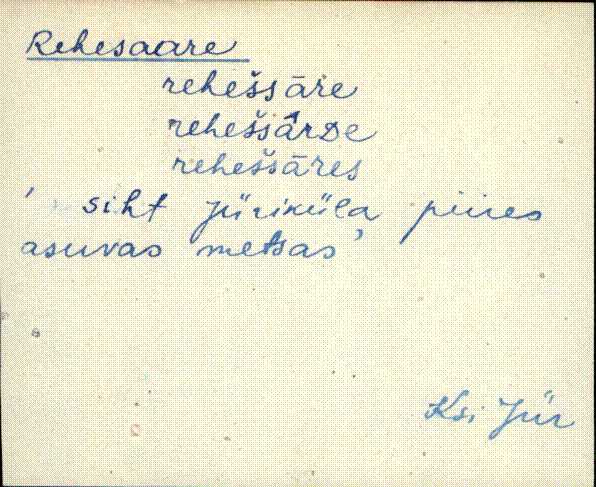 Rehesaare
rehešsāre
rehešsārDe
rehešsāres
' siht Jüriküla piires
asuvas metsas'
Ksi Jür